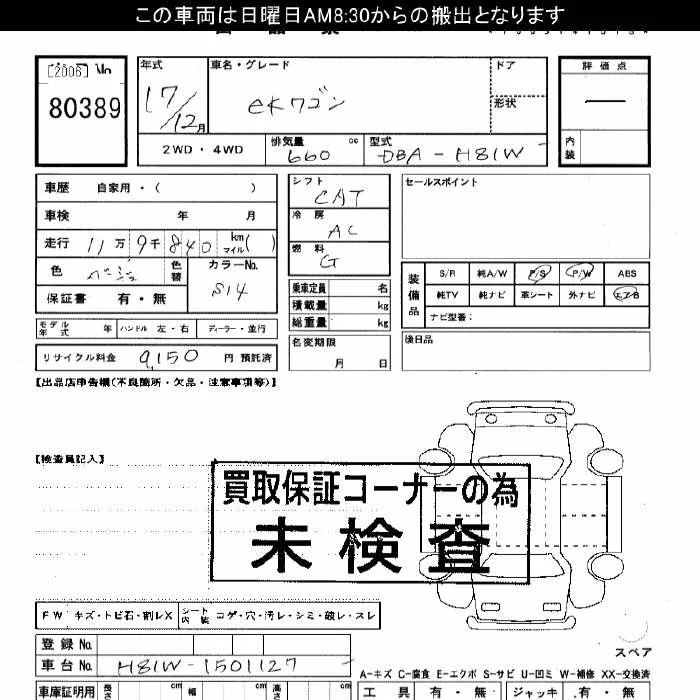 この車両は日曜日AM8:30からの搬出となります
[2006] No
80389
年式 車名・グレード ドア 評価点
17/12月 eKワゴン 形状 —
2WD・4WD 排気量 660 cc 型式 DBA-H81W 内装
車歴 自家用・( )
車検 年 月
走行 11万9千840 km マイル( )
色 ベージュ 色替 カラーNo. S14
保証書 有・無
モデル年式 年 ハンドル 左・右 ディーラー・並行
リサイクル料金 9,150 円 預託済
シフト CAT
冷房 AC
燃料 G
乗車定員 名
積載量 kg
総重量 kg
名変期限 月 日
セールスポイント
装備品 S/R 純A/W P/S P/W ABS
純TV 純ナビ 革シート 外ナビ エアB
ナビ型番:
後日品
【出品店申告欄(不良箇所・欠品・注意事項等)】
【検査員記入】
買取保証コーナーの為
未検査
FW キズ・トビ石・割レX シート内装 コゲ・穴・汚レ・シミ・破レ・スレ
登録No.
車台No. H81W-1501127
スペア
A-キズ C-腐食 E-エクボ S-サビ U-凹ミ W-補修 XX-交換済
車庫証明用 長さ cm 幅 cm 高さ cm 工具 有・無 ジャッキ 有・無